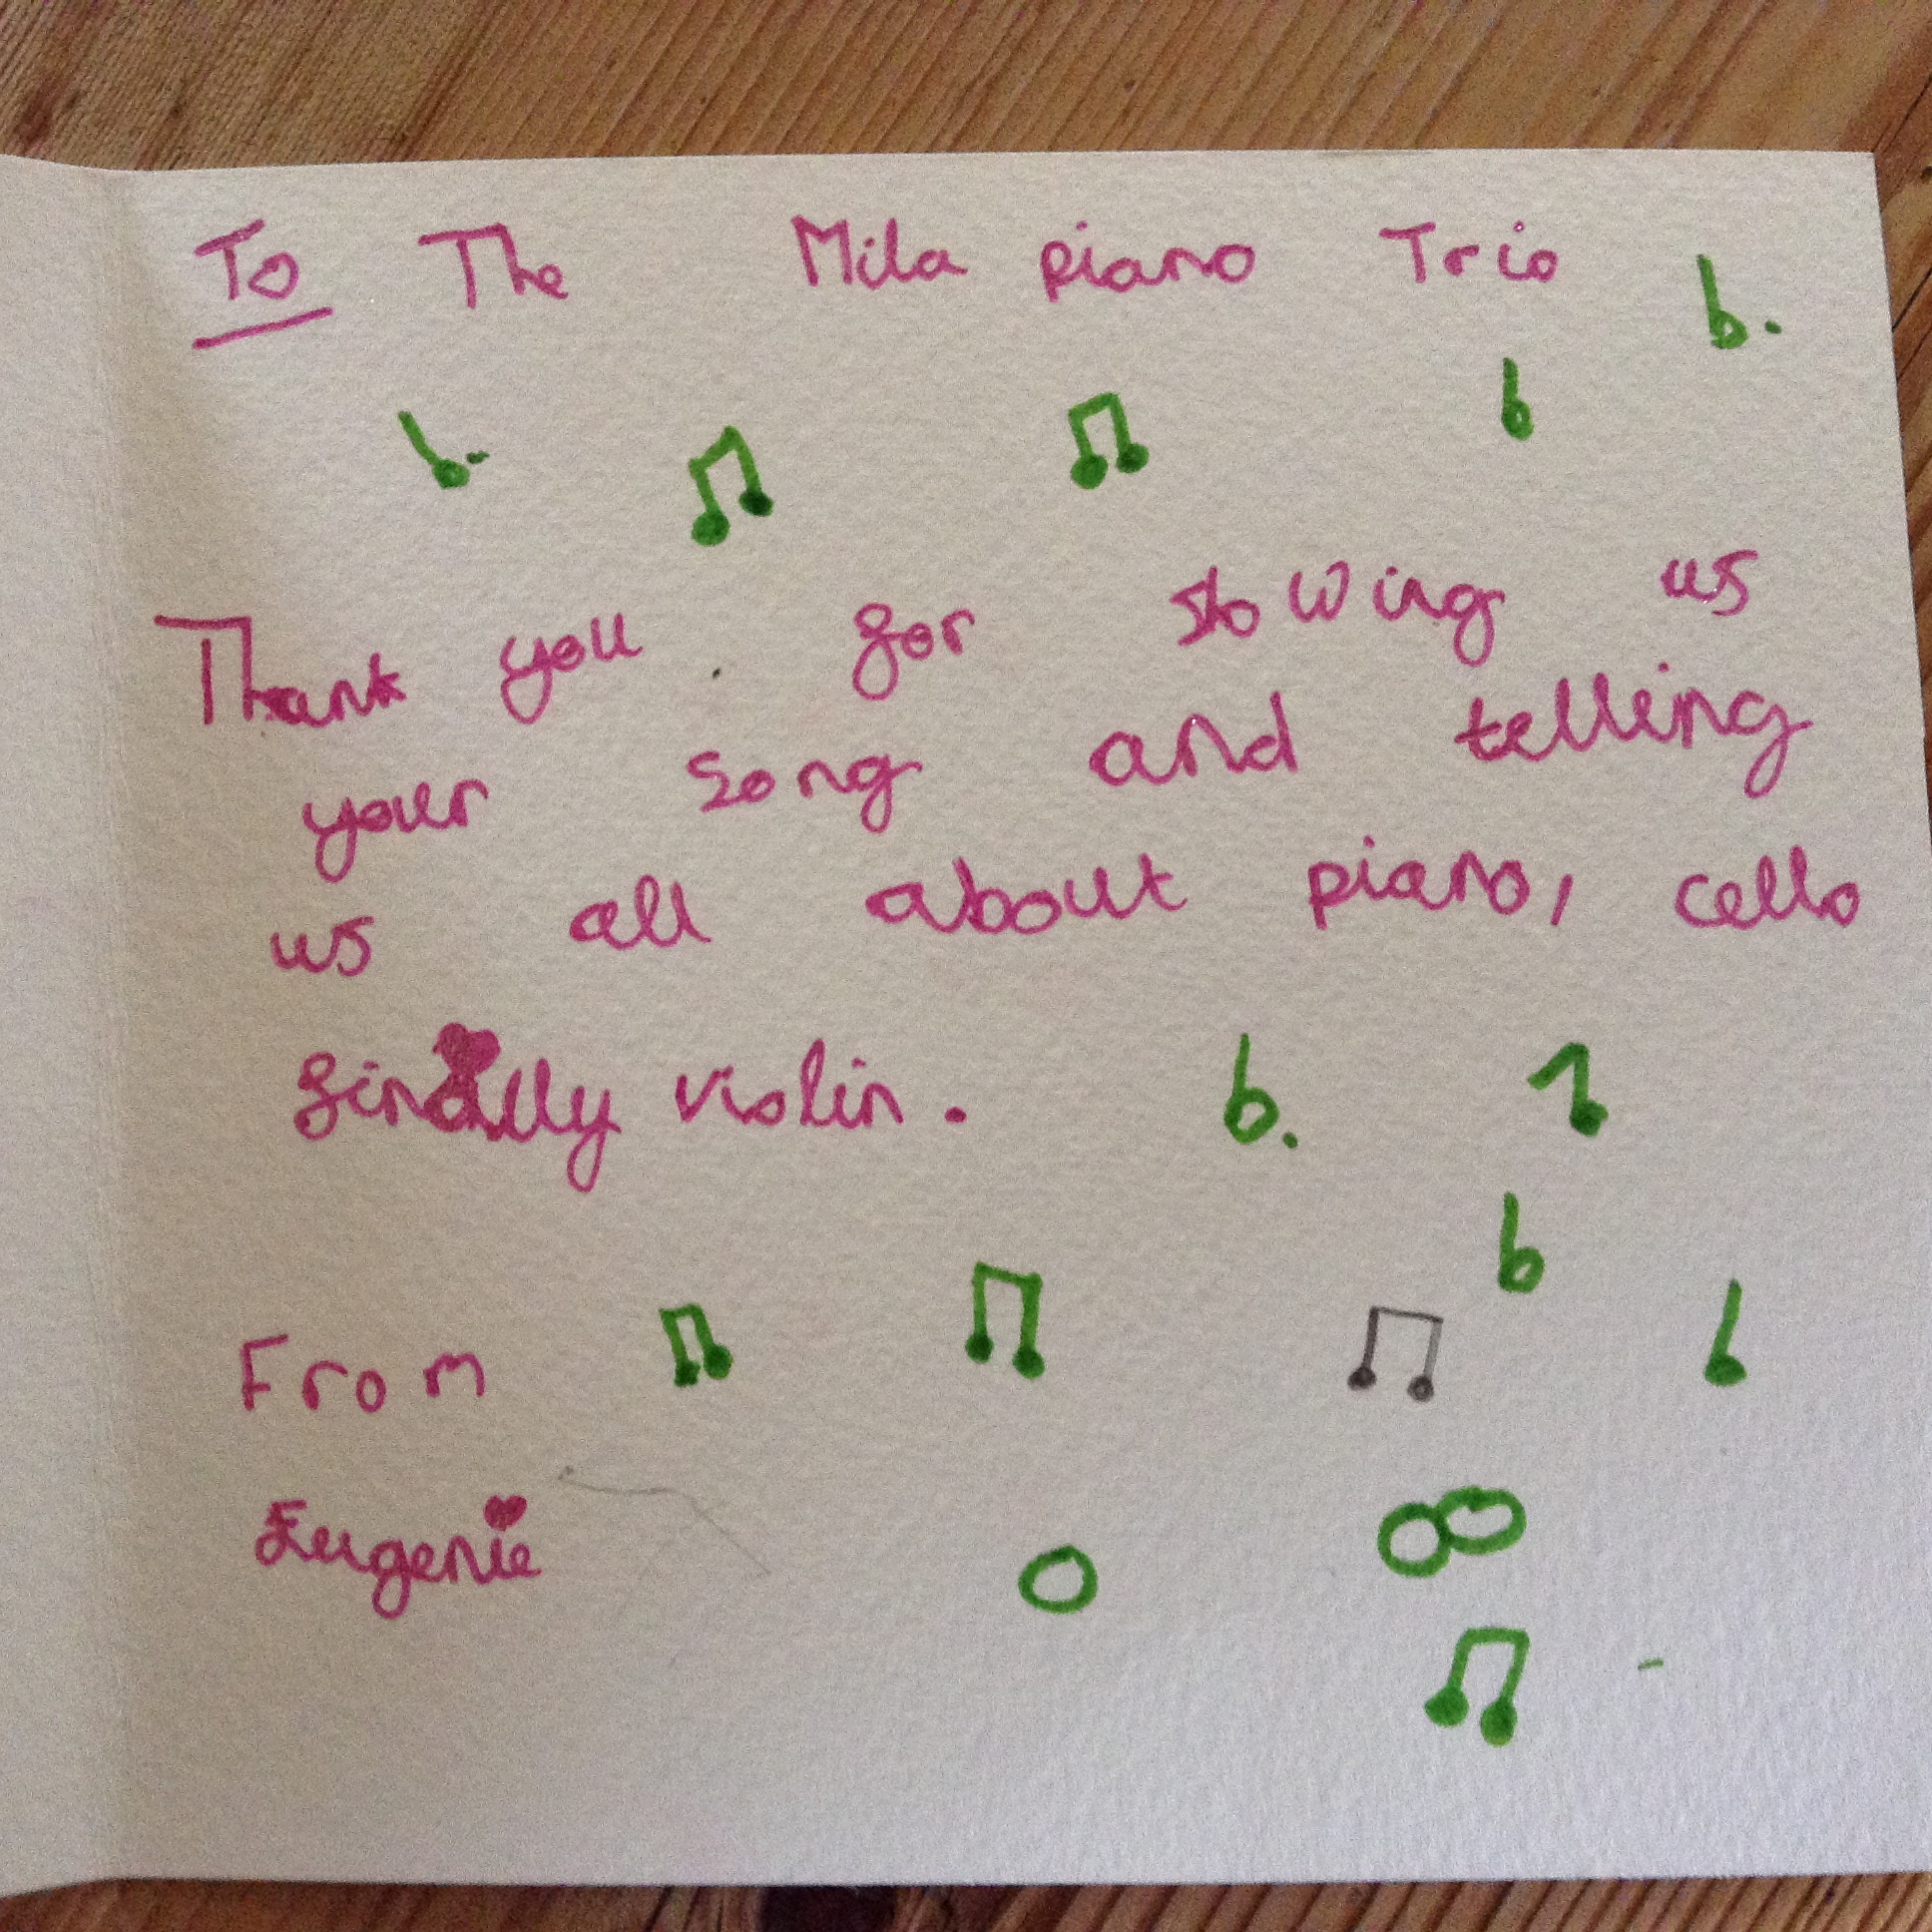 To The Mila piano Trio
Thank you for showing us
your song and telling
us all about piano, cello
finally violin.
From
Eugenie